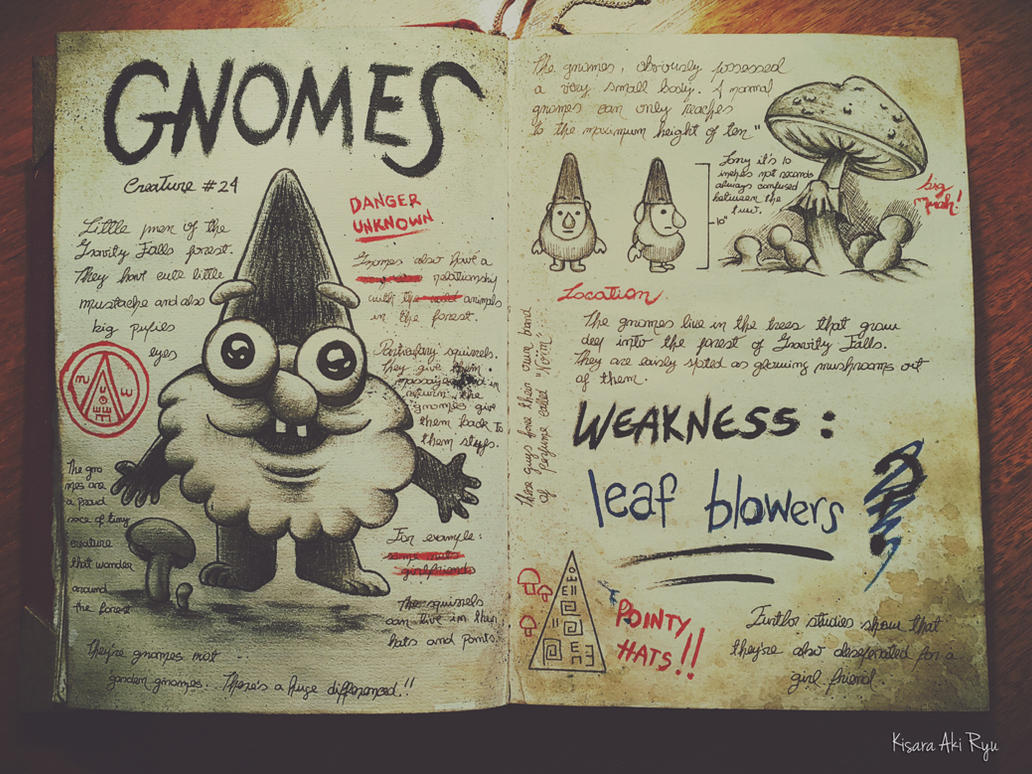 GNOMES
Creature #24
Little men of the
Gravity Falls forest.
They have cute little
mustache and also
big
eyes
The gno
mes are
a proud
race of tiny
creature
that wander
around
the forest
They're gnomes not
garden gnomes. There's a huge differenced!!
DANGER
UNKNOWN
Gnomes also have a
relationship
with the animals
in the forest.
squirrels.
They give them
the
gnomes give
them back to
them
For example:
girlfriends
The squirrels
can live in their
hats and pants.
The gnomes, obviously possessed
a very small body. A normal
gnomes can only reaches
to the maximum height of ten"
it's 10
inches not seconds
always confused
between the
two.
10"
big
Location
These guys have their own brand
of perfume called
The gnomes live in the trees that grow
deep into the forest of Gravity Falls.
They are easily spoted as growing mushrooms out
of them.
WEAKNESS:
leaf blowers
POINTY
HATS!!
studies show that
they're also desperated for a
girl friend.
Kisara Aki Ryu